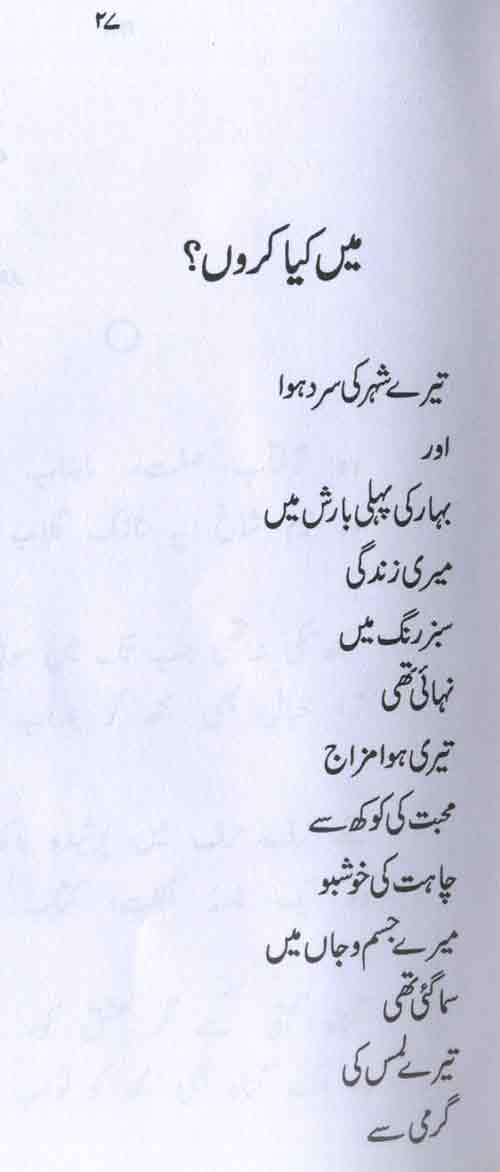 ۲۷
میں کیا کروں؟
تیرے شہر کی سرد ہوا
اور
بہار کی پہلی بارش میں
میری زندگی
سبز رنگ میں
نہائی تھی
تیری ہوا مزاج
محبت کی کوکھ سے
چاہت کی خوشبو
میرے جسم و جاں میں
سما گئی تھی
تیرے لمس کی
گرمی سے